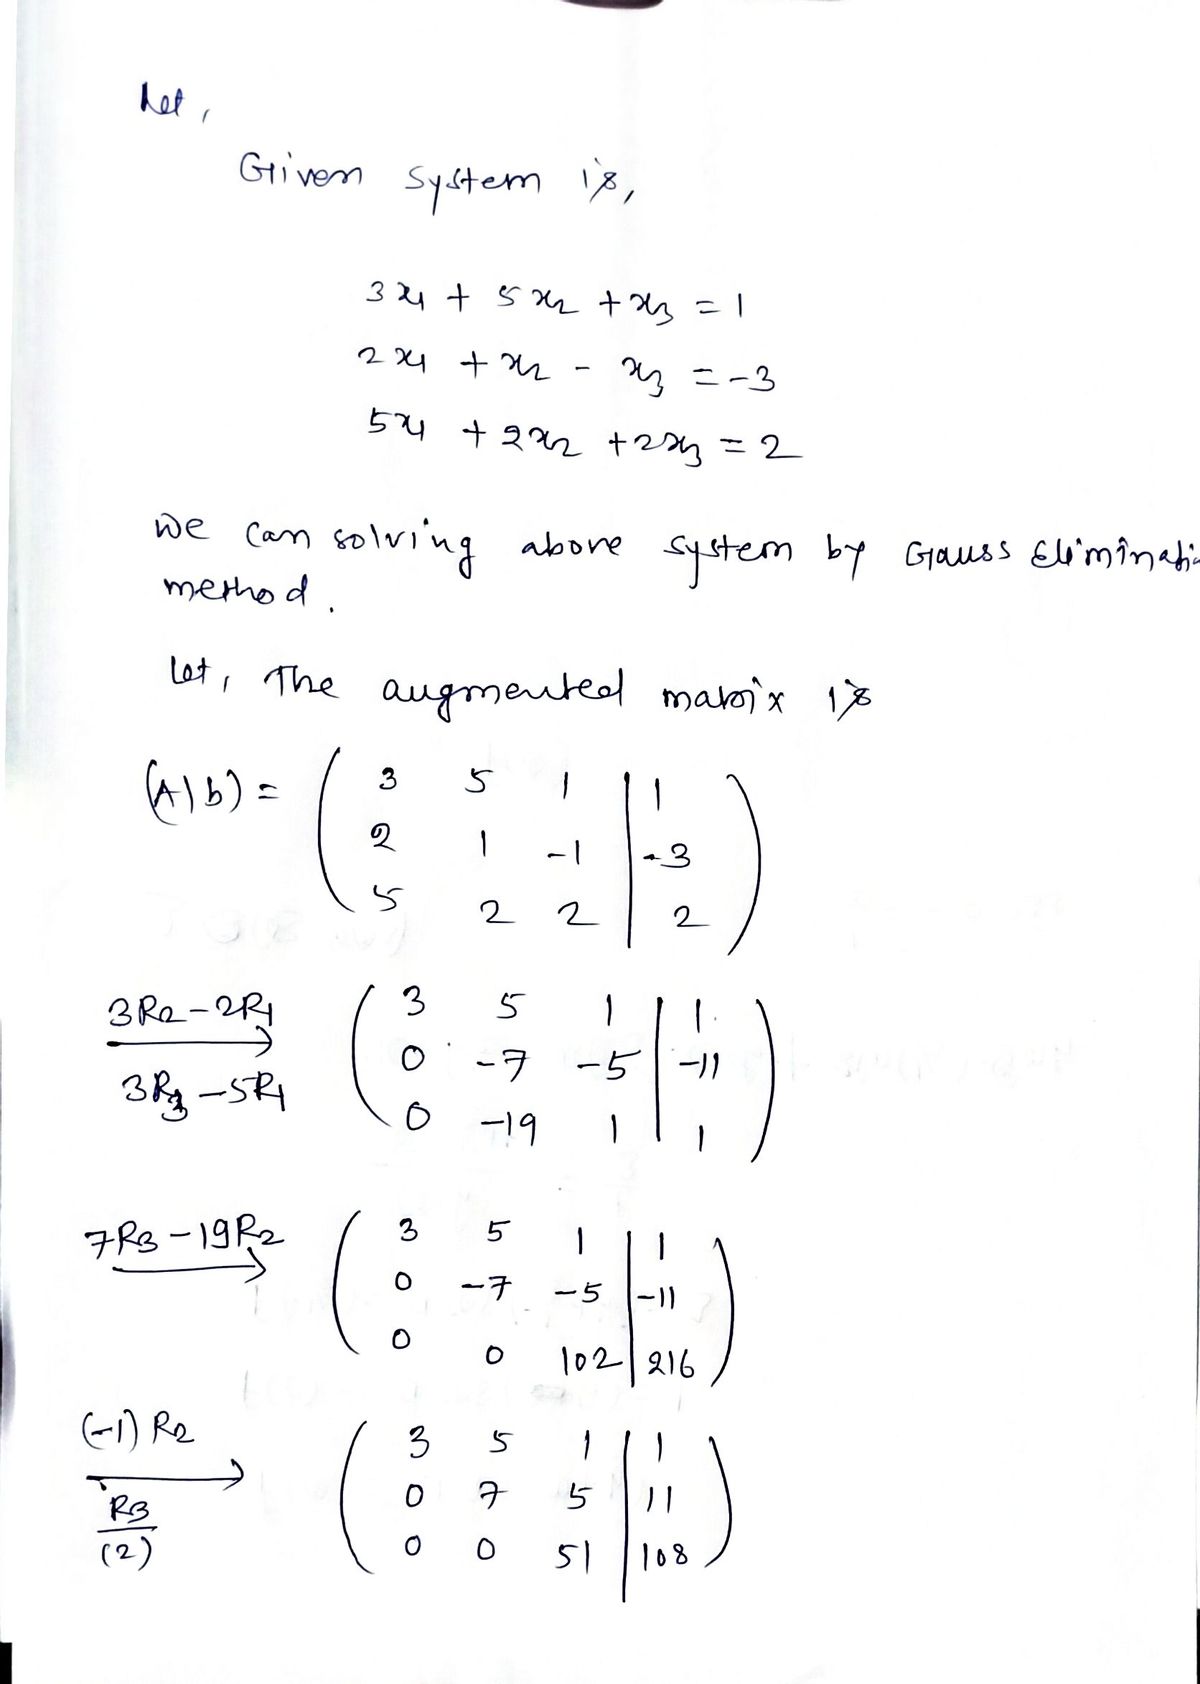 Let,
Given system is,
3x1 + 5x2 + x3 = 1
2x1 + x2 - x3 = -3
5x1 + 2x2 + 2x3 = 2
We can solving above system by Gauss Eliminati
method.
Let, The augmented matrix is
(A|b) = ( 3 5 1 | 1
2 1 -1 | -3
5 2 2 | 2 )
3R2-2R1
3R3-5R1
( 3 5 1 | 1
0 -7 -5 | -11
0 -19 1 | 1 )
7R3-19R2
( 3 5 1 | 1
0 -7 -5 | -11
0 0 102 | 216 )
(-1) R2
R3
(2)
( 3 5 1 | 1
0 7 5 | 11
0 0 51 | 108 )